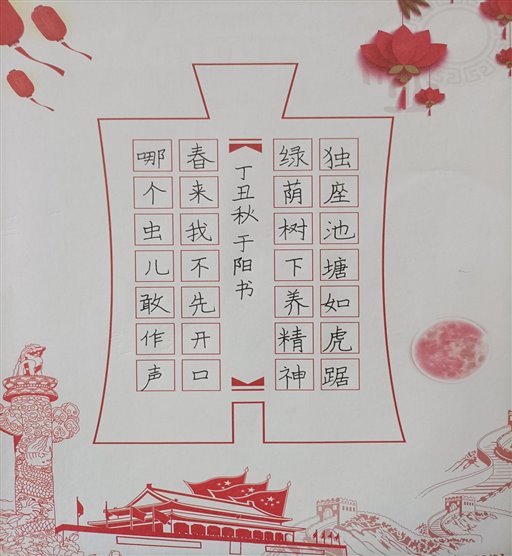 独座池塘如虎踞
绿荫树下养精神
丁丑秋于阳书
春来我不先开口
哪个虫儿敢作声